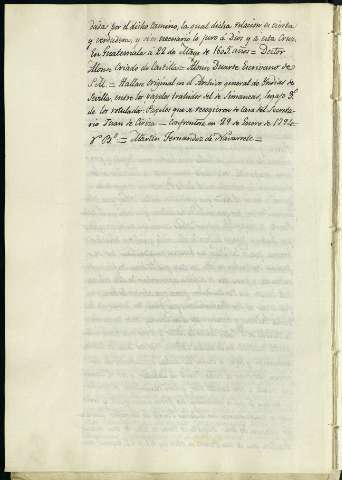 dada por el dicho camino, la qual dicha relacion es cierta
y verdadera, y si es necesario lo juro á Dios y á esta Cruz.
En Guatemala á 22 de Mayo de 1605 años = Doctor
Alonso Criado de Castilla = Alonso Duarte Escrivano de
S. M. = Hallase original en el Archivo general de Yndias de
Sevilla, entre los papeles trahidos del de Simancas, legajo 3.º
de los rotulados Papeles que se recogieron de casa del Secreta-
rio Juan de Ciriza = Confrontose en 29 de Enero de 1794 =
V.º B.º = Martin Fernandez de Navarrete =